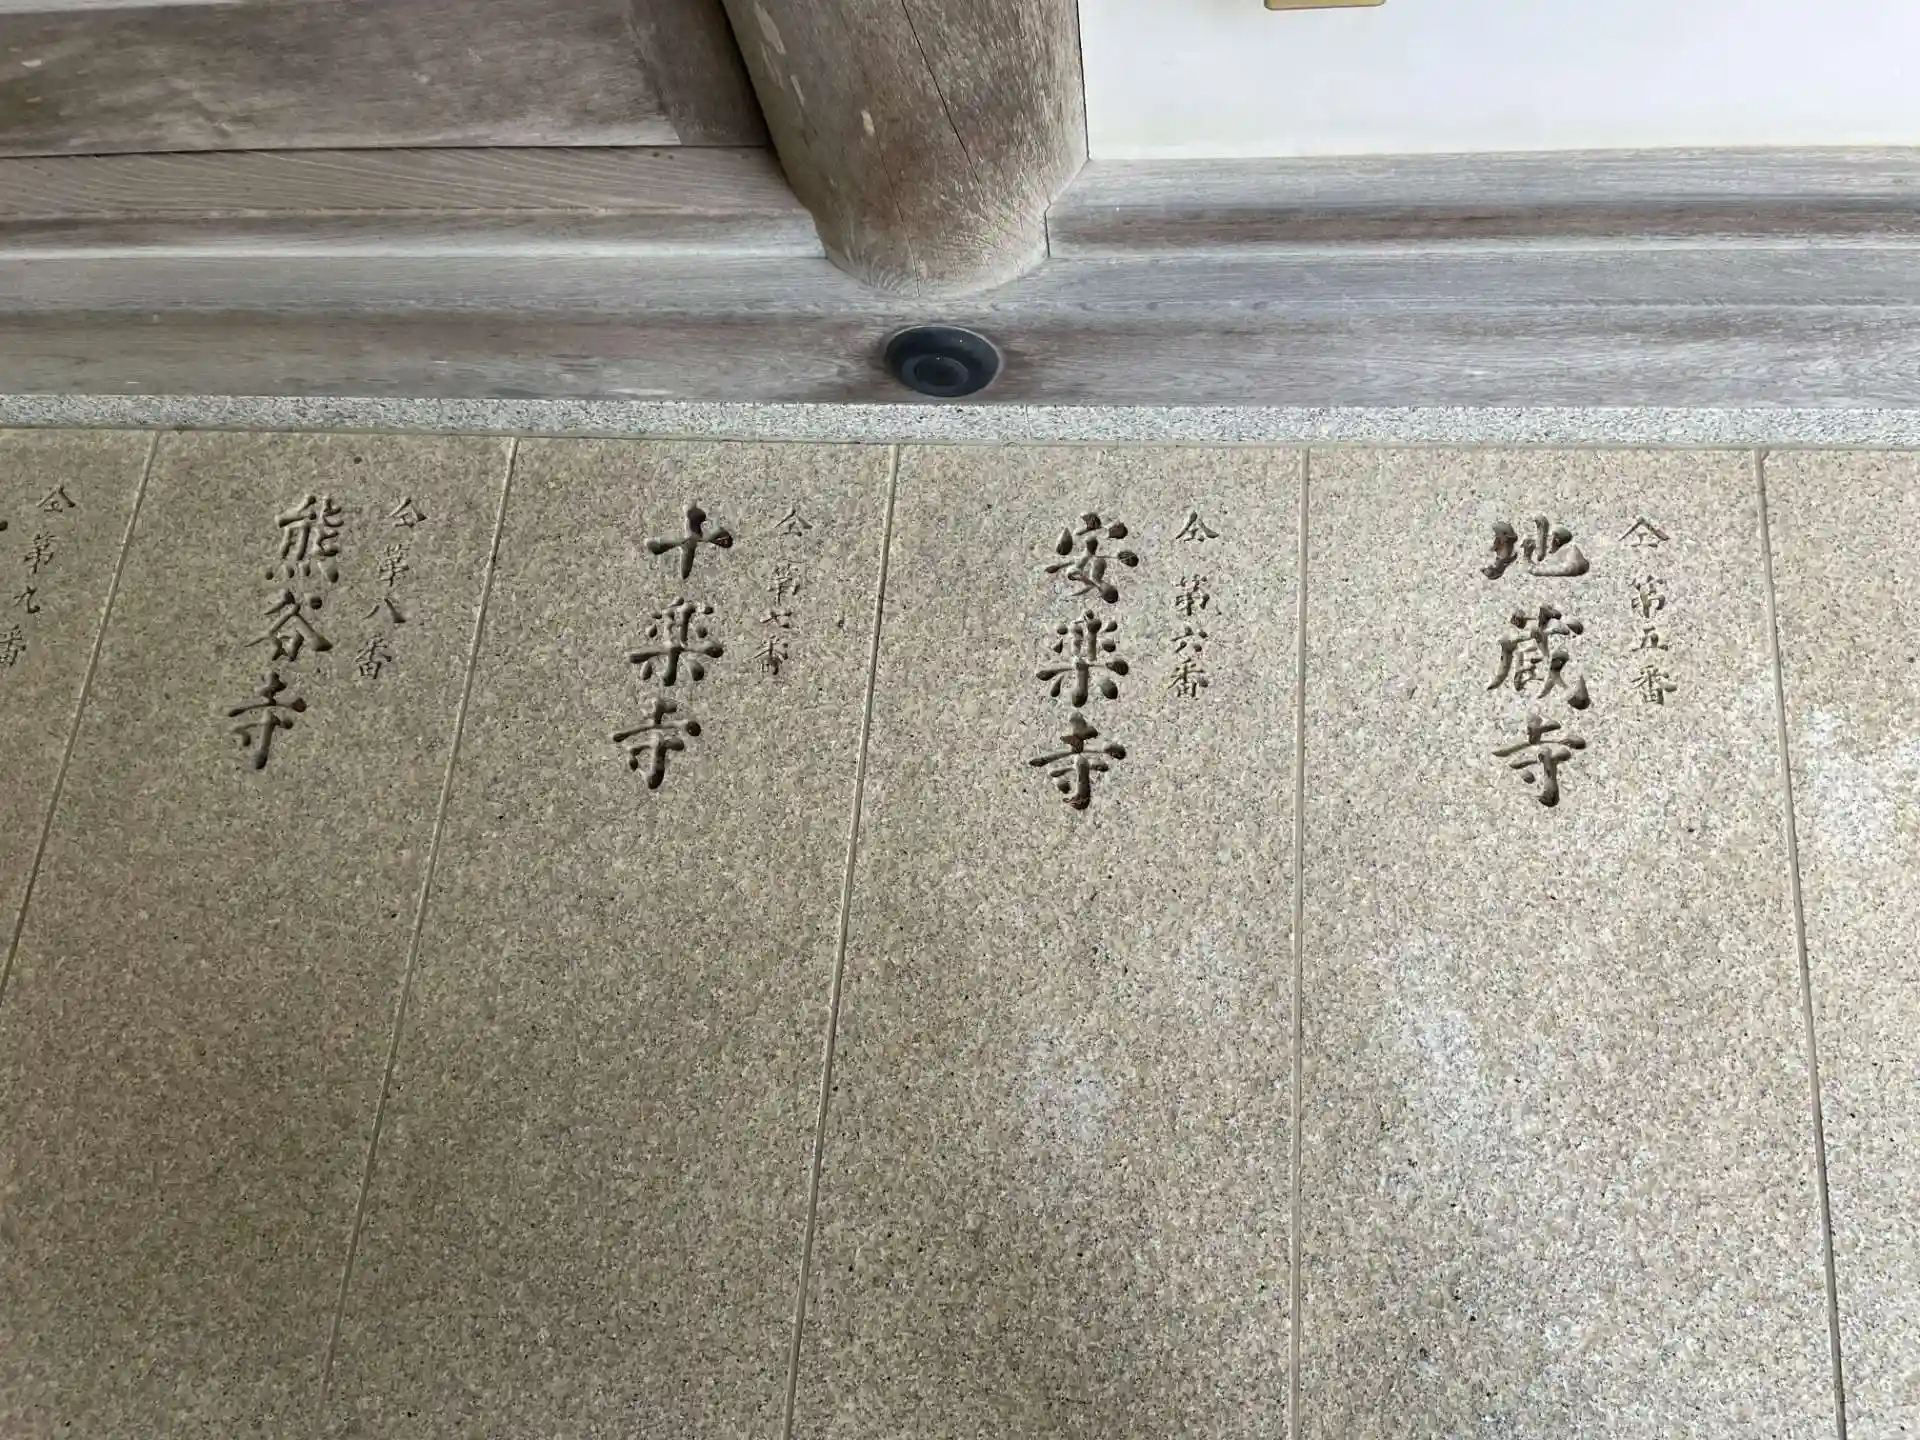 仝第五番
地蔵寺
仝第六番
安楽寺
仝第七番
十楽寺
仝第八番
熊谷寺
仝第九番